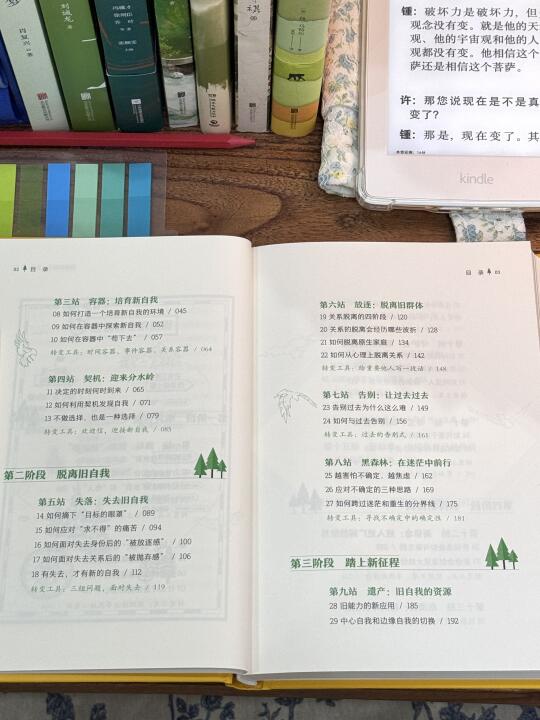 肖复兴
刘诚龙
锺：破坏力是破坏力，但
观念没有变。就是他的天
观、他的宇宙观和他的人
观都没有变。他相信这个
萨还是相信这个菩萨。
许：那您说现在是不是真
变了？
锺：那是，现在变了。其
kindle
02 目 录
第三站 容器：培育新自我
08 如何打造一个培育新自我的环境 / 045
09 如何在容器中探索新自我 / 052
10 如何在容器中“苟下去” / 057
转变工具：时间容器、事件容器、关系容器 / 064
第四站 契机：迎来分水岭
11 决定的时刻何时到来 / 065
12 如何利用契机发现自我 / 071
13 不做选择，也是一种选择 / 079
转变工具：欢迎信，迎接新自我 / 085
第二阶段 脱离旧自我
第五站 失落：失去旧自我
14 如何摘下“目标的眼罩” / 089
15 如何应对“求不得”的痛苦 / 094
16 如何面对失去身份后的“被放逐感” / 100
17 如何面对失去关系后的“被抛弃感” / 106
18 有失去，才有新的自我 / 112
转变工具：三组问题，面对失去 / 119
目 录 03
第六站 放逐：脱离旧群体
19 关系脱离的四阶段 / 120
20 关系的脱离会经历哪些波折 / 128
21 如何脱离原生家庭 / 134
22 如何从心理上脱离关系 / 142
转变工具：给重要他人写一段话 / 148
第七站 告别：让过去过去
23 告别过去为什么这么难 / 149
24 如何与过去告别 / 156
转变工具：过去的告别式 / 161
第八站 黑森林：在迷茫中前行
25 越害怕不确定，越焦虑 / 162
26 应对不确定的三种思路 / 169
27 如何跨过迷茫和重生的分界线 / 175
转变工具：寻找不确定中的确定性 / 181
第三阶段 踏上新征程
第九站 遗产：旧自我的资源
28 旧能力的新应用 / 185
29 中心自我和边缘自我的切换 / 192